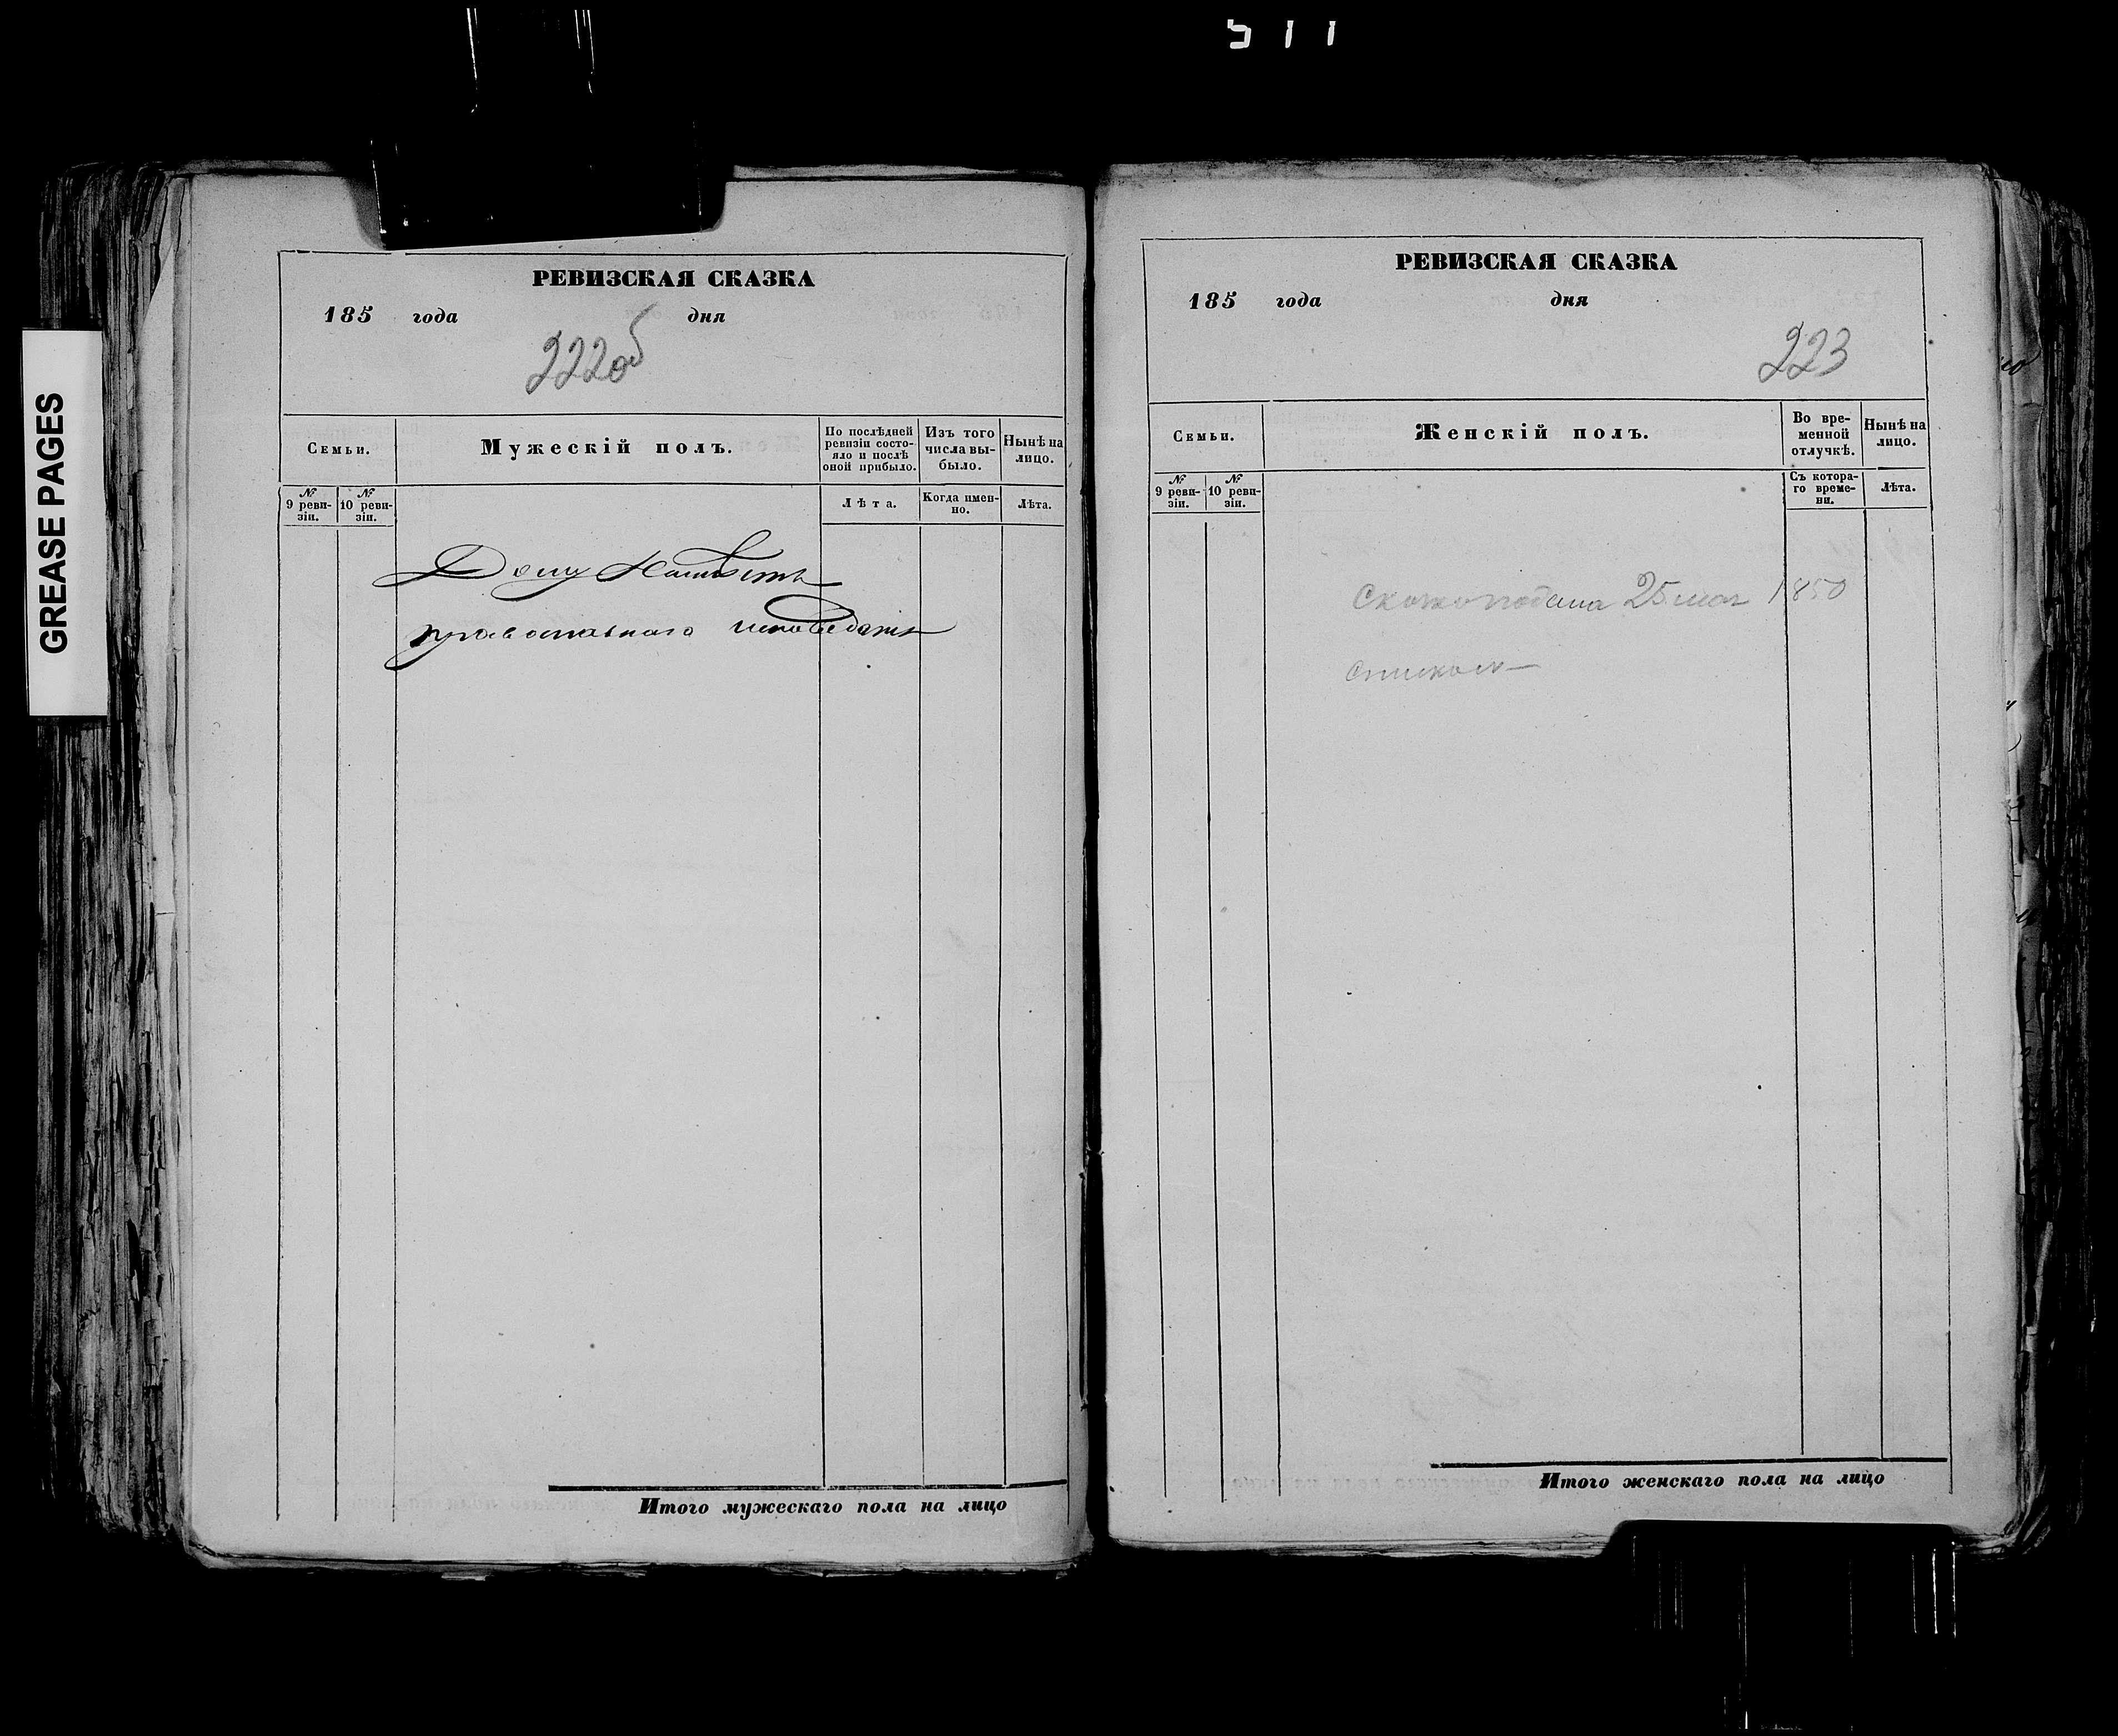 511
GREASE PAGES
РЕВИЗСКАЯ СКАЗКА
185 года дня
222об
Семьи.
Мужескій полъ.
По послѣдней
ревизіи состо-
яло и послѣ
оной прибыло.
Изъ того
числа вы-
было.
Нынѣ на
лицо.
№
9 реви-
зіи.
№
10 реви-
зіи.
Лѣта.
Когда имен-
но.
Лѣта.
православнаго исповеданія
Итого мужескаго пола на лицо
РЕВИЗСКАЯ СКАЗКА
185 года дня
223
Семьи.
Женскій полъ.
Во вре-
менной
отлучкѣ.
Нынѣ на
лицо.
№
9 реви-
зіи.
№
10 реви-
зіи.
Съ котора-
го време-
ни.
Лѣта.
25 мая 1850
Итого женскаго пола на лицо